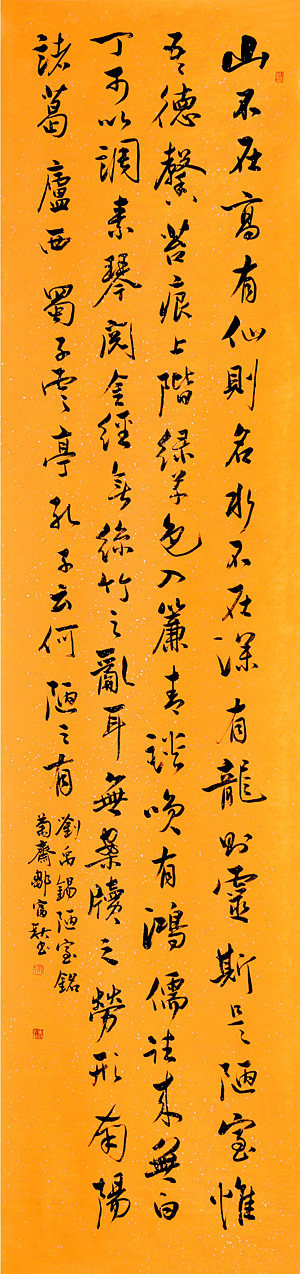 山不在高有仙則名水不在深有龍則靈斯是陋室惟
吾德馨苔痕上階綠草色入簾青談咲有鴻儒往来無白
丁可以調素琴閱金經無絲竹之亂耳無案牘之勞形南陽
諸葛廬西蜀子雲亭孔子云何陋之有
劉禹錫陋室銘
菊齋鄒富书